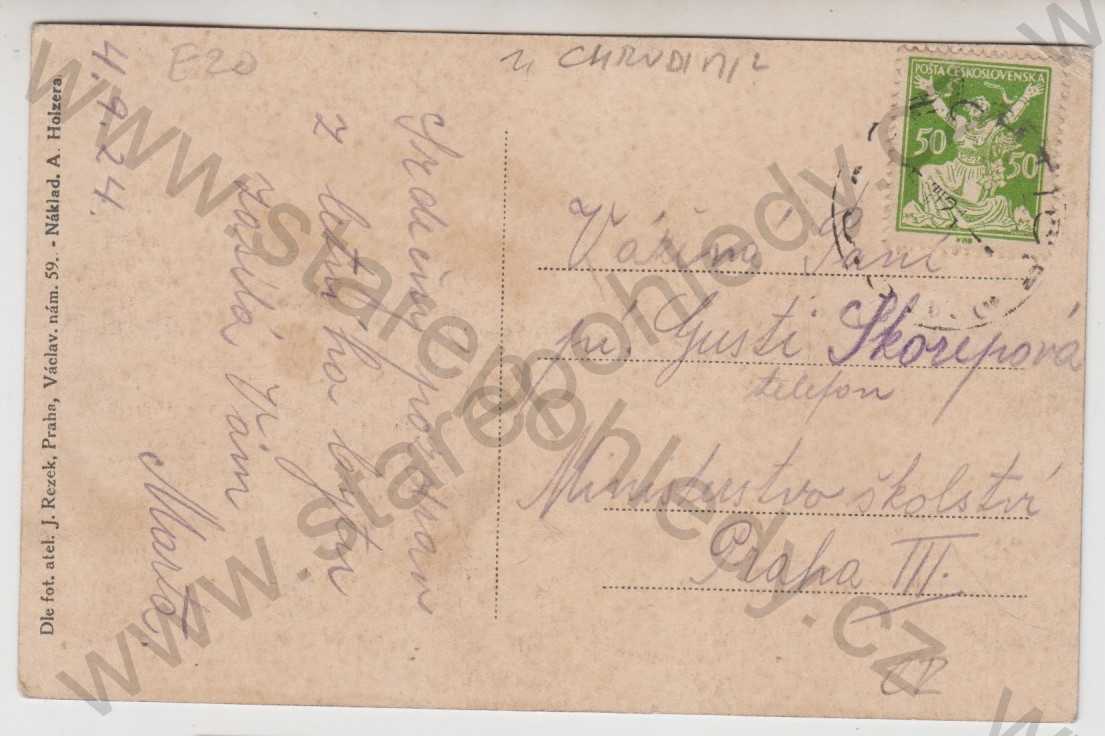 E20
u CHRUDIMI 2
4.9.24.
Srdečný pozdrav
z letního bytu
zasílá Vám
Marta.
Dle fot. atel. J. Rezek, Praha, Václav. nám. 59. - Náklad. A. Holzera.
POŠTA ČESKOSLOVENSKÁ
50 50
Vážená Paní
pí. Gusti Skorepová
telefon
Ministerstvo školství
Praha III.
www.starepohledy.cz
www.starepohledy.cz